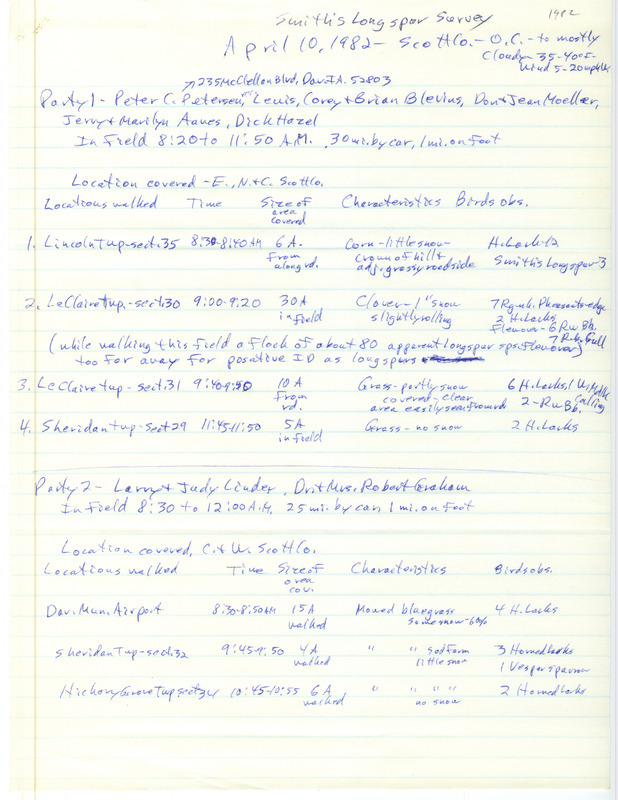 Smith's Longspur Survey 1982
April 10, 1982 - Scott Co. - O.C. - to mostly
Cloudy - 35-40°F-
Wind 5-20mph
235 McClellan Blvd, Dav. IA. 52803
Party 1 - Peter C. Petersen, Lewis, Corey + Brian Blevins, Don + Jean Moeller,
Jerry + Marilyn Aanes, Dick Hazel
In Field 8:20 to 11:50 A.M. 30 mi. by car, 1 mi. on foot
Location covered - E., N. + C. Scott Co.
Locations walked Time Size of area covered Characteristics Birds obs.
1. Lincoln Twp - sect. 35 8:30-8:40 AM 6 A. Corn - little snow - H. Lark - 12
From along rd. crown of hill + Smith's Longspur - 3
adj. grassy roadside
2. LeClaire Twp. - sect. 30 9:00-9:20 30 A Clover - 1" snow 7 Rg-nk. Pheasants-edge
in field slightly rolling 2 H. Larks
Flew over - 6 Rw Bb.
7 R-b. Gull
(while walking this field a flock of about 80 apparent longspur sps. flew over)
too far away for posative ID as longspurs
3. LeClaire twp - sect. 31 9:40-9:50 10 A Grass - partly snow 6 H. Larks, 1 W. Mdlk
From rd. covered - clear Calling
area easily seen from rd 2 - Rw Bb.
4. Sheridan twp - sect 29 11:45-11:50 5 A Grass - no snow 2 H. Larks
in field
Party 2 - Larry + Judy Linder, Dr. + Mrs. Robert Graham
In Field 8:30 to 12:00 A.M. 25 mi. by car 1 mi. on foot
Location covered, C. + W. Scott Co.
Locations walked Time Size of area cov. Characteristics Birds obs.
Dav. Mun. Airport 8:30-8:50 AM 15 A Mowed bluegrass 4 H. Larks
walked some snow - 60%
Sheridan Twp - sect 32 9:45-9:50 4 A " " sod farm 3 Horned larks
walked little snow 1 Vesper sparrow
Hickory Grove Twp sect 34 10:45-10:55 6 A " " " " 2 Horned larks
walked no snow